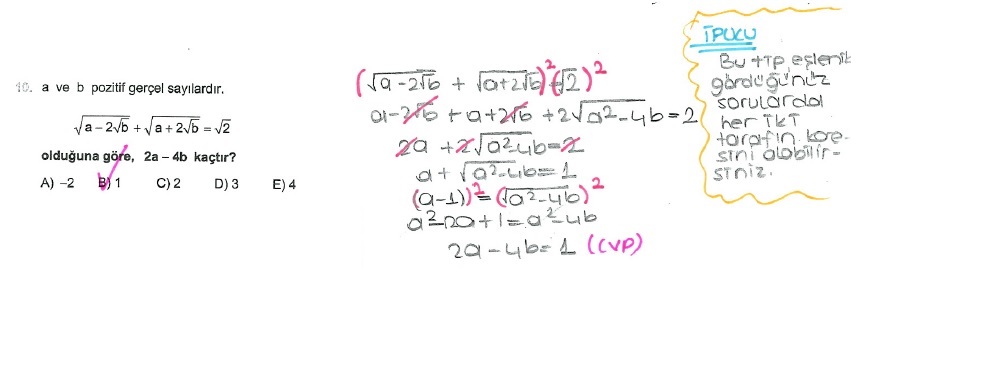 10. a ve b pozitif gerçel sayılardır.
√(a − 2√b) + √(a + 2√b) = √2
olduğuna göre, 2a − 4b kaçtır?
A) −2 B) 1 C) 2 D) 3 E) 4
(√(a−2√b) + √(a+2√b))² = (√2)²
a−2√b + a+2√b + 2√(a²−4b) = 2
2a + 2√(a²−4b) = 2
a + √(a²−4b) = 1
(a−1)² = (√(a²−4b))²
a²−2a+1 = a²−4b
2a − 4b = 1 (CVP)
İPUCU
Bu tip eşlenik
gördüğünüz
sorularda
her iki
tarafın kare-
sini alabilir-
siniz.